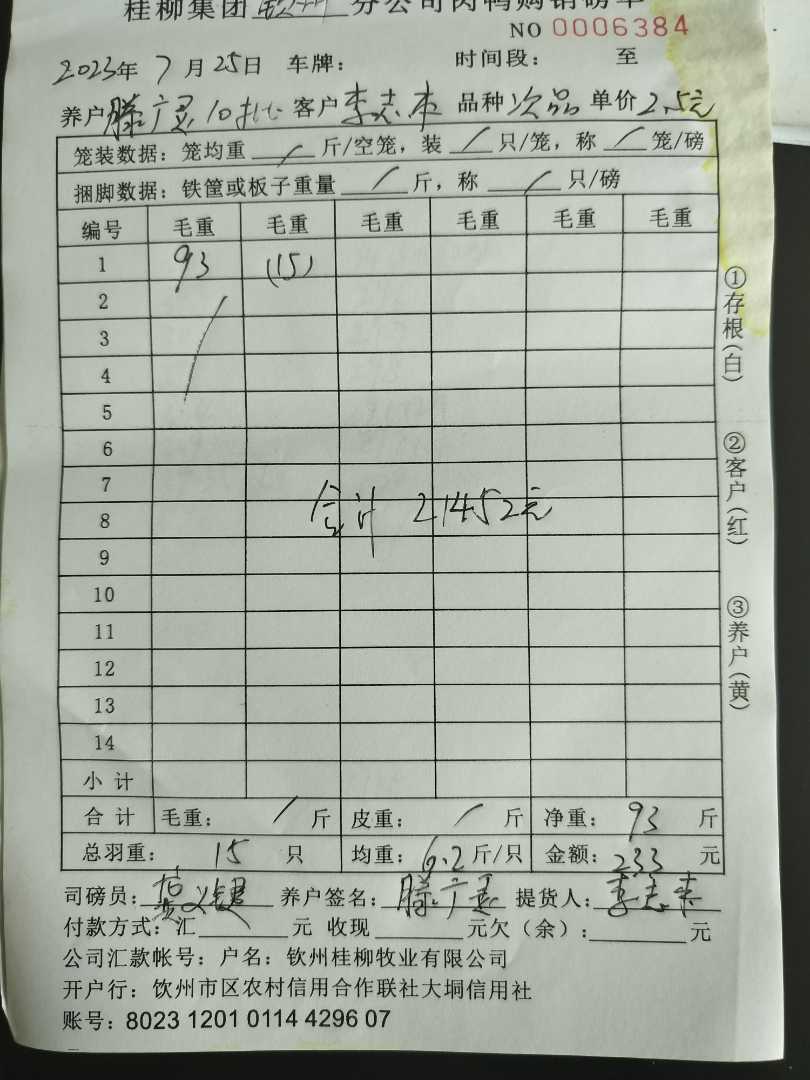 桂柳集团钦州分公司肉鸭购销磅单
NO 0006384
2023年7月25日 车牌： 时间段： 至
养户滕广灵10批 客户李志来 品种次品 单价2.5元
笼装数据：笼均重 / 斤/空笼，装 / 只/笼，称 / 笼/磅
捆脚数据：铁筐或板子重量 / 斤，称 / 只/磅
编号 毛重 毛重 毛重 毛重 毛重 毛重
1 93 (15)
2
3
4
5
6
7
合计 21452元
8
9
10
11
12
13
14
小计
合计 毛重： / 斤 皮重： / 斤 净重：93 斤
总羽重：15 只 均重：6.2斤/只 金额：233 元
司磅员： 养户签名：滕广灵 提货人：李志来
付款方式：汇 元 收现 元欠（余）： 元
公司汇款帐号：户名：钦州桂柳牧业有限公司
开户行：饮州市区农村信用合作联社大垌信用社
账号：8023 1201 0114 4296 07
①存根（白）
②客户（红）
③养户（黄）